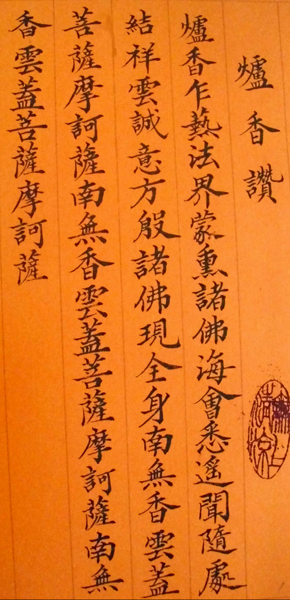 爐香讚
爐香乍藝法界蒙熏諸佛海會悉遙聞隨處
結祥雲誠意方殷諸佛現全身南無香雲蓋
菩薩摩訶薩南無香雲蓋菩薩摩訶薩南無
香雲蓋菩薩摩訶薩